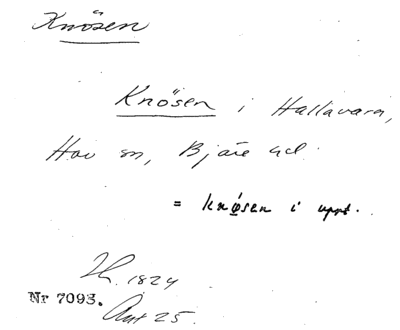 Knösen
Knösen i Hallavara,
Hov sn, Bjäre hd.
= knǿsen i uppt.
1824
Nr 7093.
Ant 25.